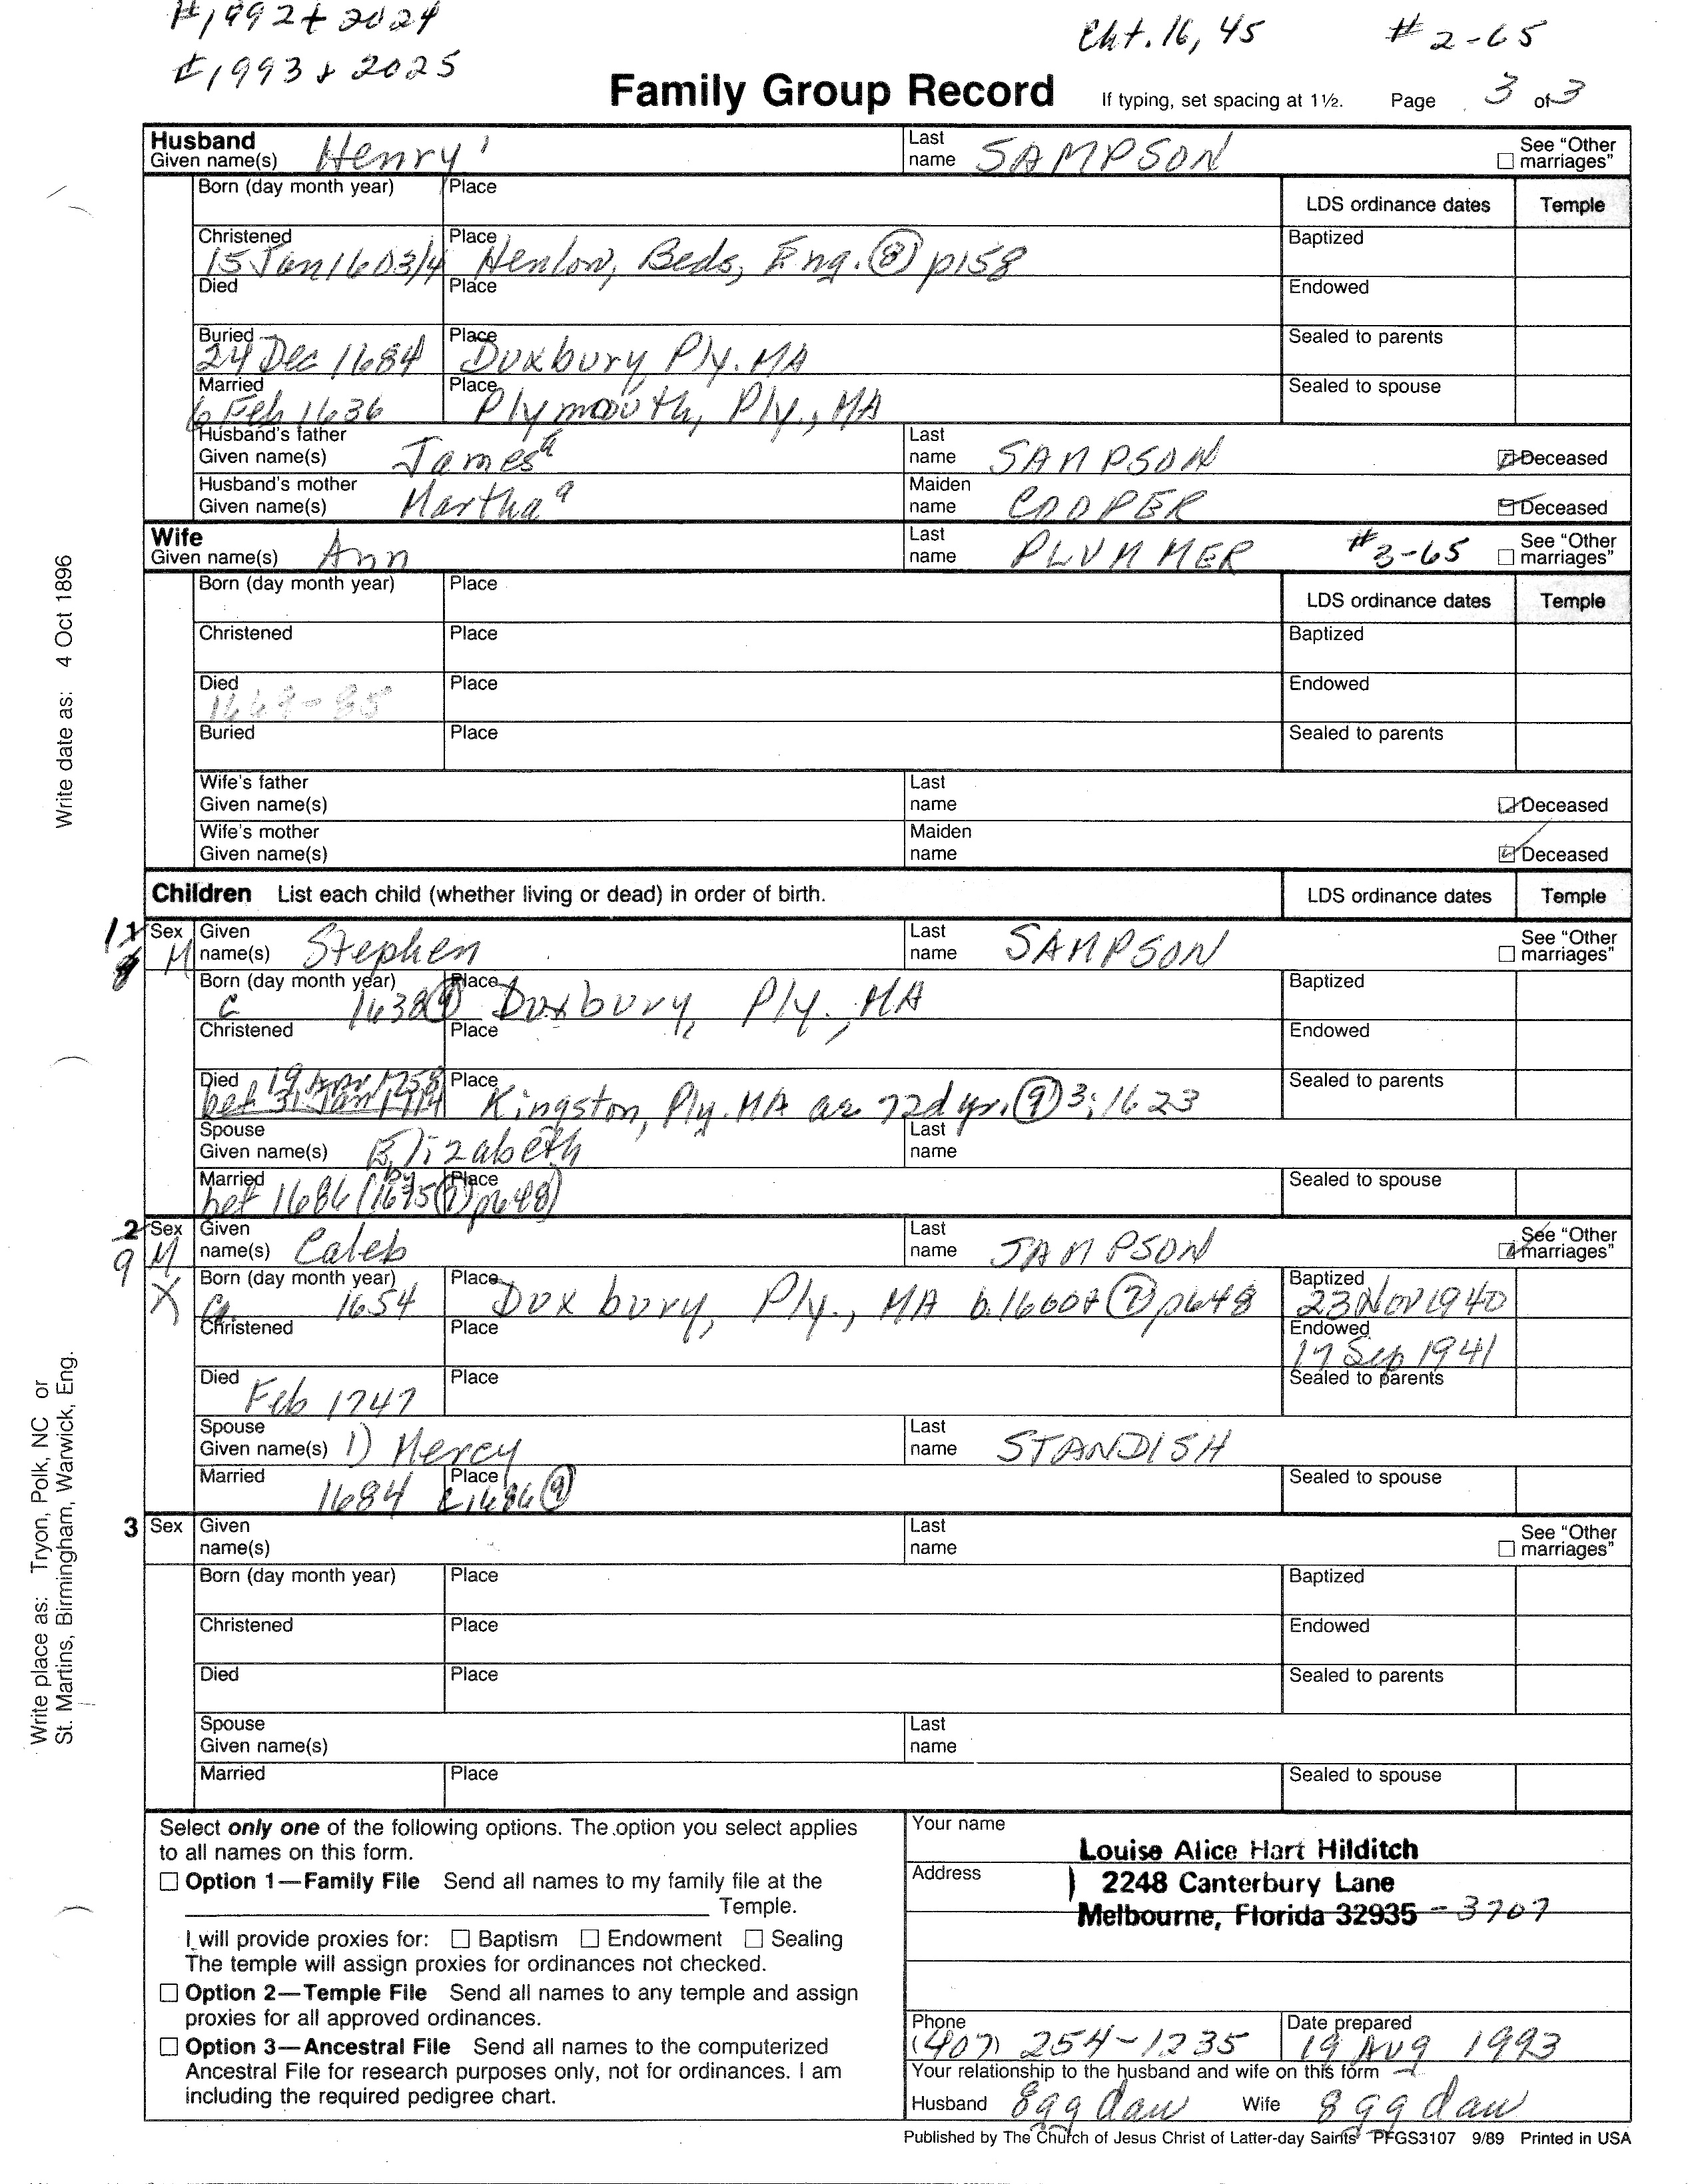 #1992+2024
#1993+2025
Cht. 16, 45
#2-65
Family Group Record If typing, set spacing at 1½. Page 3 of 3
Husband
Given name(s) Henry
Last name SAMPSON
See "Other marriages"
Born (day month year) Place
LDS ordinance dates Temple
Christened 15 Jan 1603/4 Place Henlow, Beds, Eng. (8) p158
Baptized
Died Place
Endowed
Buried 24 Dec 1684 Place Duxbury Ply. MA
Sealed to parents
Married 6 Feb 1636 Place Plymouth, Ply., MA
Sealed to spouse
Husband's father
Given name(s) James
Last name SAMPSON
Deceased
Husband's mother
Given name(s) Martha
Maiden name COOPER
Deceased
Wife
Given name(s) Ann
Last name PLUMMER #3-65
See "Other marriages"
Born (day month year) Place
LDS ordinance dates Temple
Christened Place
Baptized
Died 1668-85 Place
Endowed
Buried Place
Sealed to parents
Wife's father
Given name(s)
Last name
Deceased
Wife's mother
Given name(s)
Maiden name
Deceased
Children List each child (whether living or dead) in order of birth.
LDS ordinance dates Temple
1 8 Sex M Given name(s) Stephen
Last name SAMPSON
See "Other marriages"
Born (day month year) C 1638 (9) Place Duxbury, Ply., MA
Baptized
Christened Place
Endowed
Died bef 31 Jan 1714 Place Kingston, Ply. MA ae 72d yr. (9) 3:1623
Sealed to parents
Spouse
Given name(s) Elizabeth
Last name
Married bef 1686 Place p648
Sealed to spouse
2 9 Sex M X Given name(s) Caleb
Last name SAMPSON
See "Other marriages"
Born (day month year) Ca. 1654 Place Duxbury, Ply., MA p648
Baptized 23 Nov 1940
Christened Place
Endowed 17 Sep 1941
Died Feb 1747 Place
Sealed to parents
Spouse
Given name(s) 1) Mercy
Last name STANDISH
Married 1684 Place C 1686 (9)
Sealed to spouse
3 Sex Given name(s)
Last name
See "Other marriages"
Born (day month year) Place
Baptized
Christened Place
Endowed
Died Place
Sealed to parents
Spouse
Given name(s)
Last name
Married Place
Sealed to spouse
Write date as: 4 Oct 1896
Write place as: Tryon, Polk, NC or
St. Martins, Birmingham, Warwick, Eng.
Select only one of the following options. The option you select applies
to all names on this form.
Option 1—Family File Send all names to my family file at the
Temple.
I will provide proxies for: Baptism Endowment Sealing
The temple will assign proxies for ordinances not checked.
Option 2—Temple File Send all names to any temple and assign
proxies for all approved ordinances.
Option 3—Ancestral File Send all names to the computerized
Ancestral File for research purposes only, not for ordinances. I am
including the required pedigree chart.
Your name
Louise Alice Hart Hilditch
Address
2248 Canterbury Lane
Melbourne, Florida 32935-3707
Phone (407) 254-1235
Date prepared 19 Aug 1993
Your relationship to the husband and wife on this form
Husband 8gg dau Wife 8gg dau
Published by The Church of Jesus Christ of Latter-day Saints PFGS3107 9/89 Printed in USA